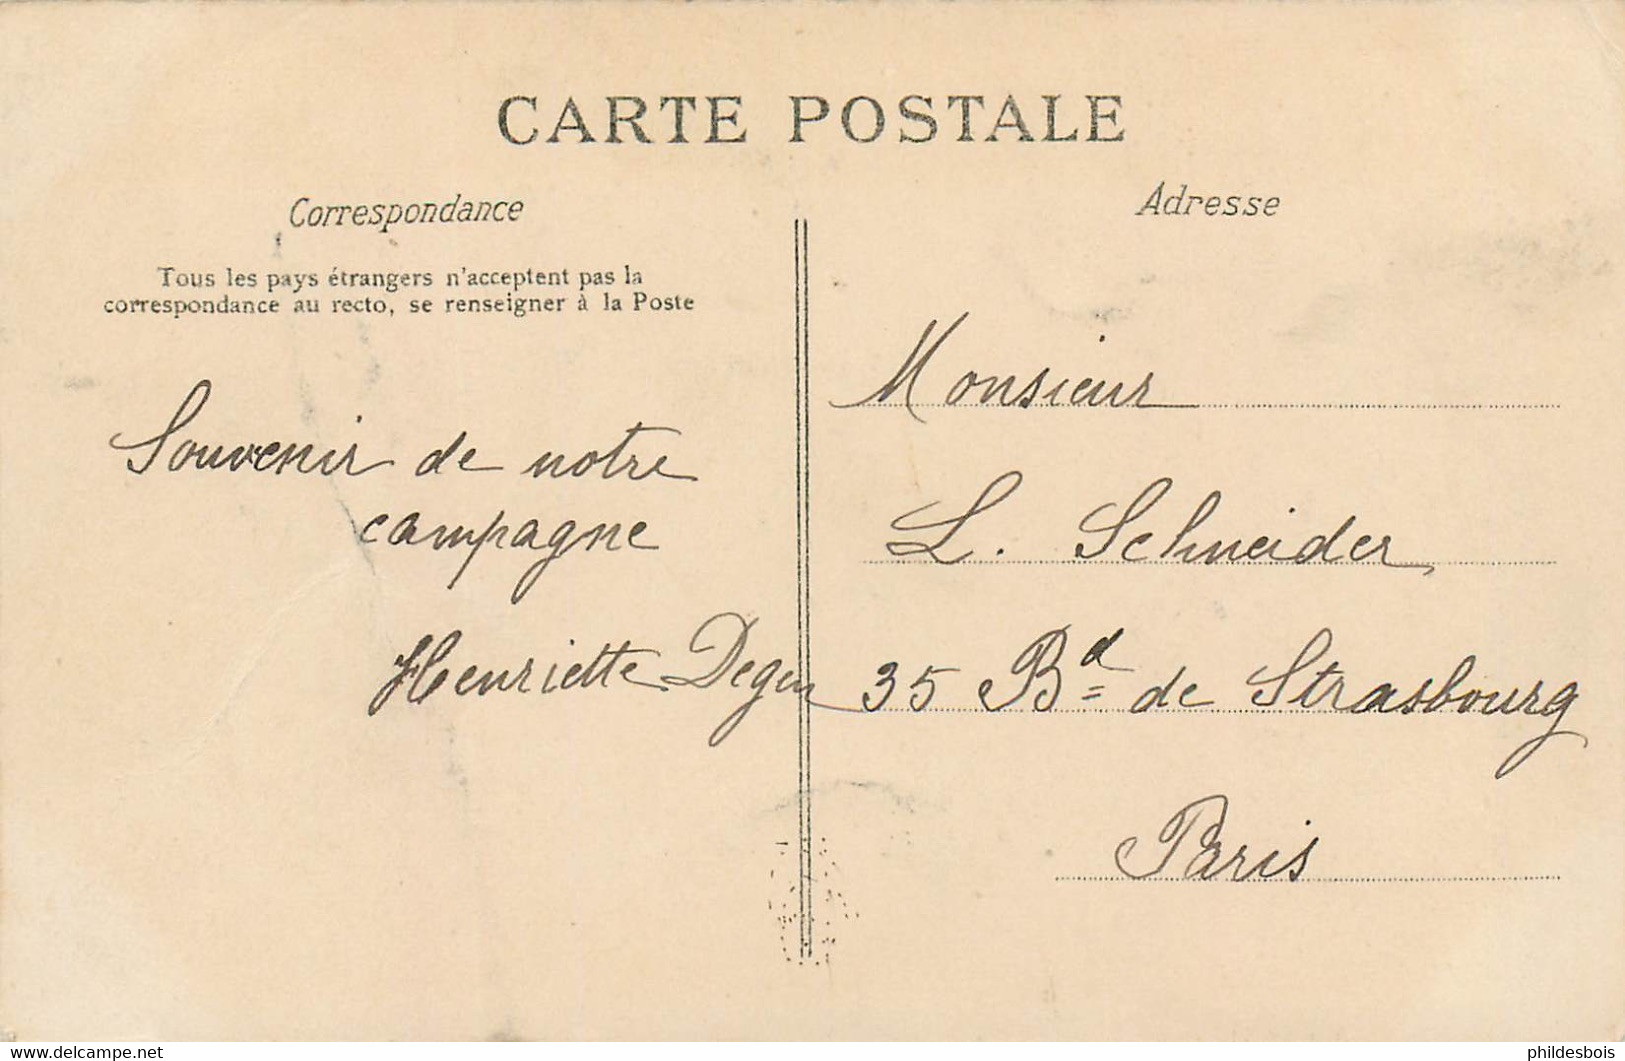 CARTE POSTALE
Correspondance
Tous les pays étrangers n'acceptent pas la
correspondance au recto, se renseigner à la Poste
Souvenir de notre
campagne
Henriette Degen
Adresse
Monsieur
L. Schneider
35 Bd de Strasbourg
Paris
www.delcampe.net
phildesbois